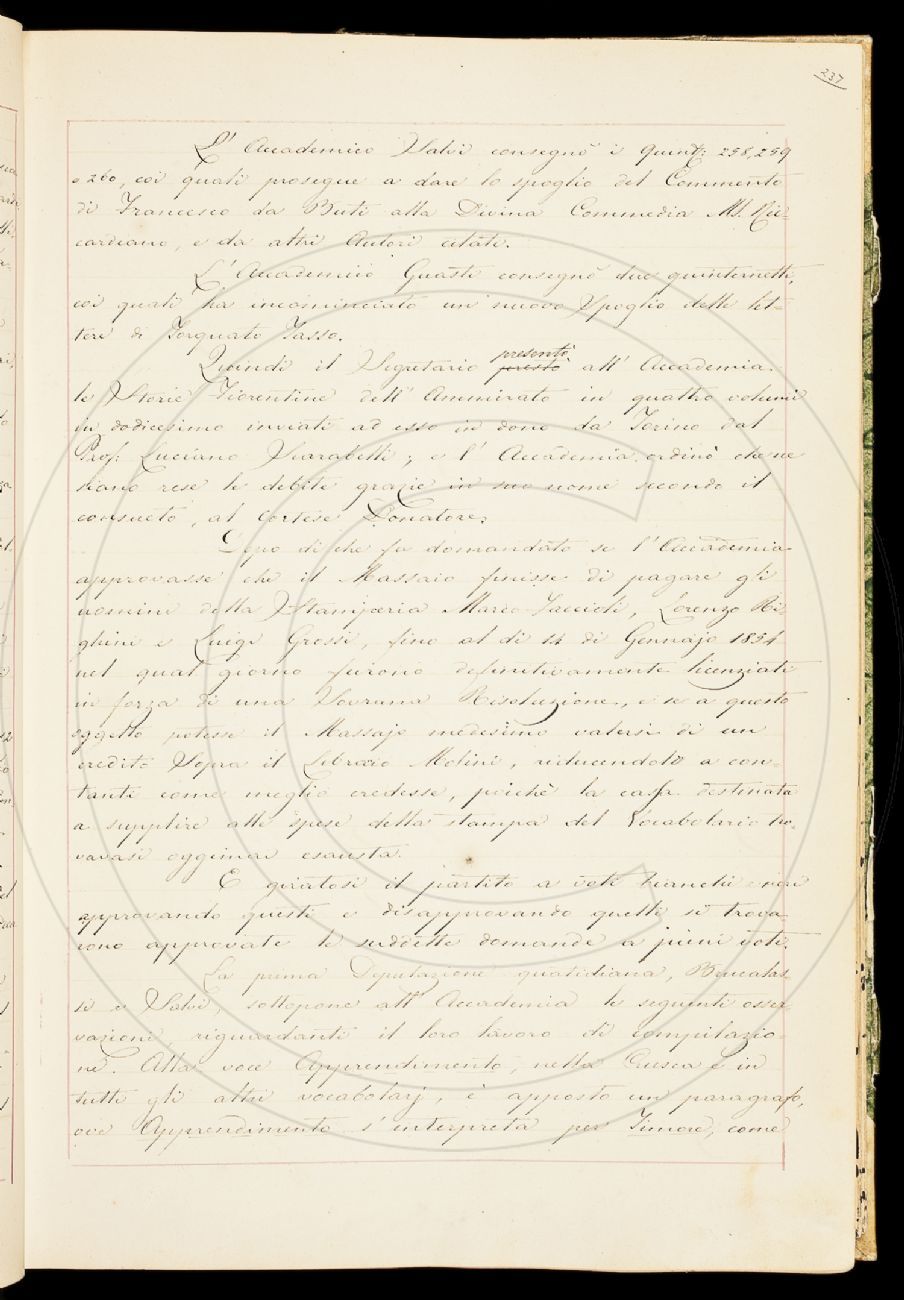 237
L' Accademico Salvi consegnò i Quint.: 258, 259
e 260, coi quali prosegue a dare lo spoglio del Commento
di Francesco da Buti alla Divina Commedia Ms. Ric-
cardiano, e da altri Autori citati.
L' Accademico Guasti consegnò due quinternetti,
coi quali ha incominciato un nuovo Spoglio delle let-
tere di Torquato Tasso.
Quindi il Segretario presentò all' Accademia
le Storie Fiorentine dell' Ammirato in quattro volumi
in dodicesimo inviati ad esso in dono da Torino dal
Prof: Luciano Scarabelli; e l' Accademia ordinò che ne
siano rese le debite grazie in suo nome secondo il
consueto, al cortese Donatore.
Dopo di che fu domandato se l' Accademia
approvasse che il Massaio finisse di pagare gli
uomini della Stamperia Marco Taccioli, Lorenzo Ri-
ghini e Luigi Grossi, fino al dì 14 di Gennajo 1854
nel qual giorno furono definitivamente licenziati
in forza di una Sovrana Risoluzione, e se a questo
oggetto potesse il Massajo medesimo valersi di un
credito Sopra il Libraio Molini, riducendolo a con-
tanti come meglio credesse, poichè la cassa destinata
a supplire alle spese della stampa del Vocabolario tro-
vavasi oggimai esausta.
E giratosi il partito a voti bianchi e neri
approvando questi e disapprovando quelli si trova-
rono approvate le suddette domande a pieni voti.
La prima Deputazione quotidiana, Brucalas-
si e Salvi, sottopone all' Accademia le seguenti osser-
vazioni, riguardanti il loro lavoro di compilazio-
ne. Alla voce Apprendimento, nella Crusca e in
tutti gli altri vocabolarj, è apposto un paragrafo,
ove Apprendimento s' interpreta per Timore, come